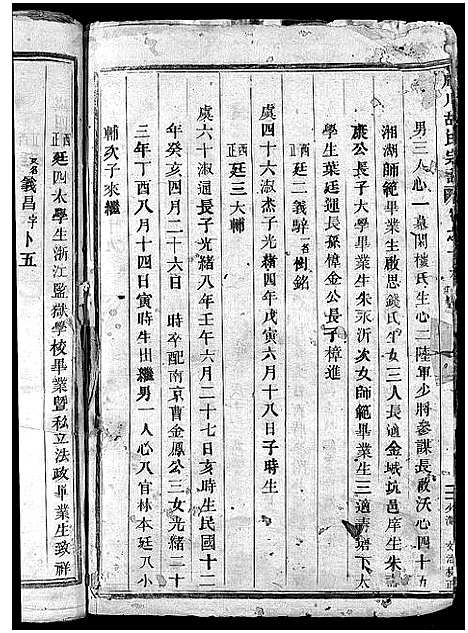 胡氏宗譜
男三人心一幕閑樓氏生心二陸軍少將參謀長嚴沃心四十五
湘湖師範畢業生啟思錢氏生女三人長適金城坑邑庠生朱
康公長子大學畢業生朱永沂次女師範畢業生三適素塘下大
學生葉廷運長孫樟金公長子樟進
酉正 廷二義騂 名樹銘
虞四十六余子光緒四年戊寅六月十八日子時生
酉正 廷三大輔
虞六十淑通長子光緒八年壬午六月二十七日亥時生民國十二
年癸亥二月二十六日 時卒配南京曹金鳳公三女光緒二十
三年丁酉八月十四日寅時生出繼男一人心八官林本廷八小
輔次子來繼
酉正 廷四太學生浙江監獄學校畢業暨私立法政畢業生致祥
又名義昌字卜五